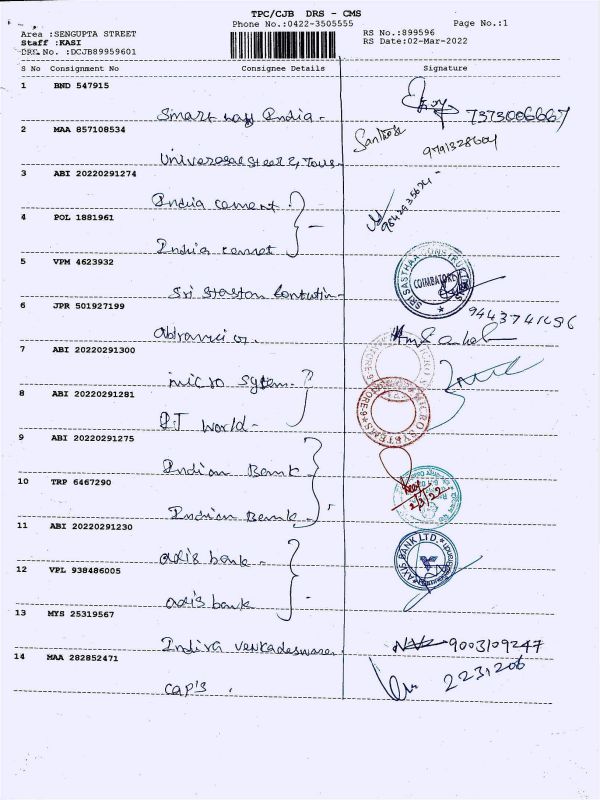 TPC/CJB DRS - CMS
Phone No.:0422-3505555 Page No.:1
Area :SENGUPTA STREET RS No.:899596
Staff :KASI RS Date:02-Mar-2022
DRS No. :DCJB89959601
S No Consignment No Consignee Details Signature
1 BND 547915
India - 7373006667
2 MAA 857108534
Santhosh
9791328604
3 ABI 20220291274
India cement
4 POL 1881961
India
5 VPM 4623932
SRI SASTHAA CONSTRUCTIONS
COIMBATORE
Sri
6 JPR 501927199
9443741696
7 ABI 20220291300
micro system
8 ABI 20220291281
MICRO SYSTEMS
RJ World -
9 ABI 20220291275
Indian Bank
10 TRP 6467290
2/3/22
Indian Bank
11 ABI 20220291230
AXIS BANK LTD.
axis bank
12 VPL 938486005
axis bank
13 MYS 25319567
Indira venkadeswarer. 9003109247
14 MAA 282852471
2231206
cap's